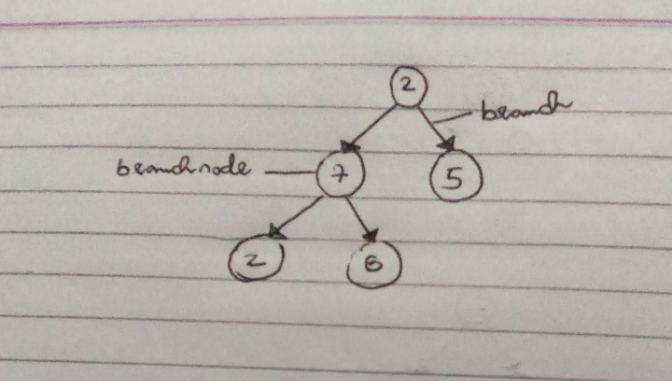 2
branch
branch node
7
5
2
6